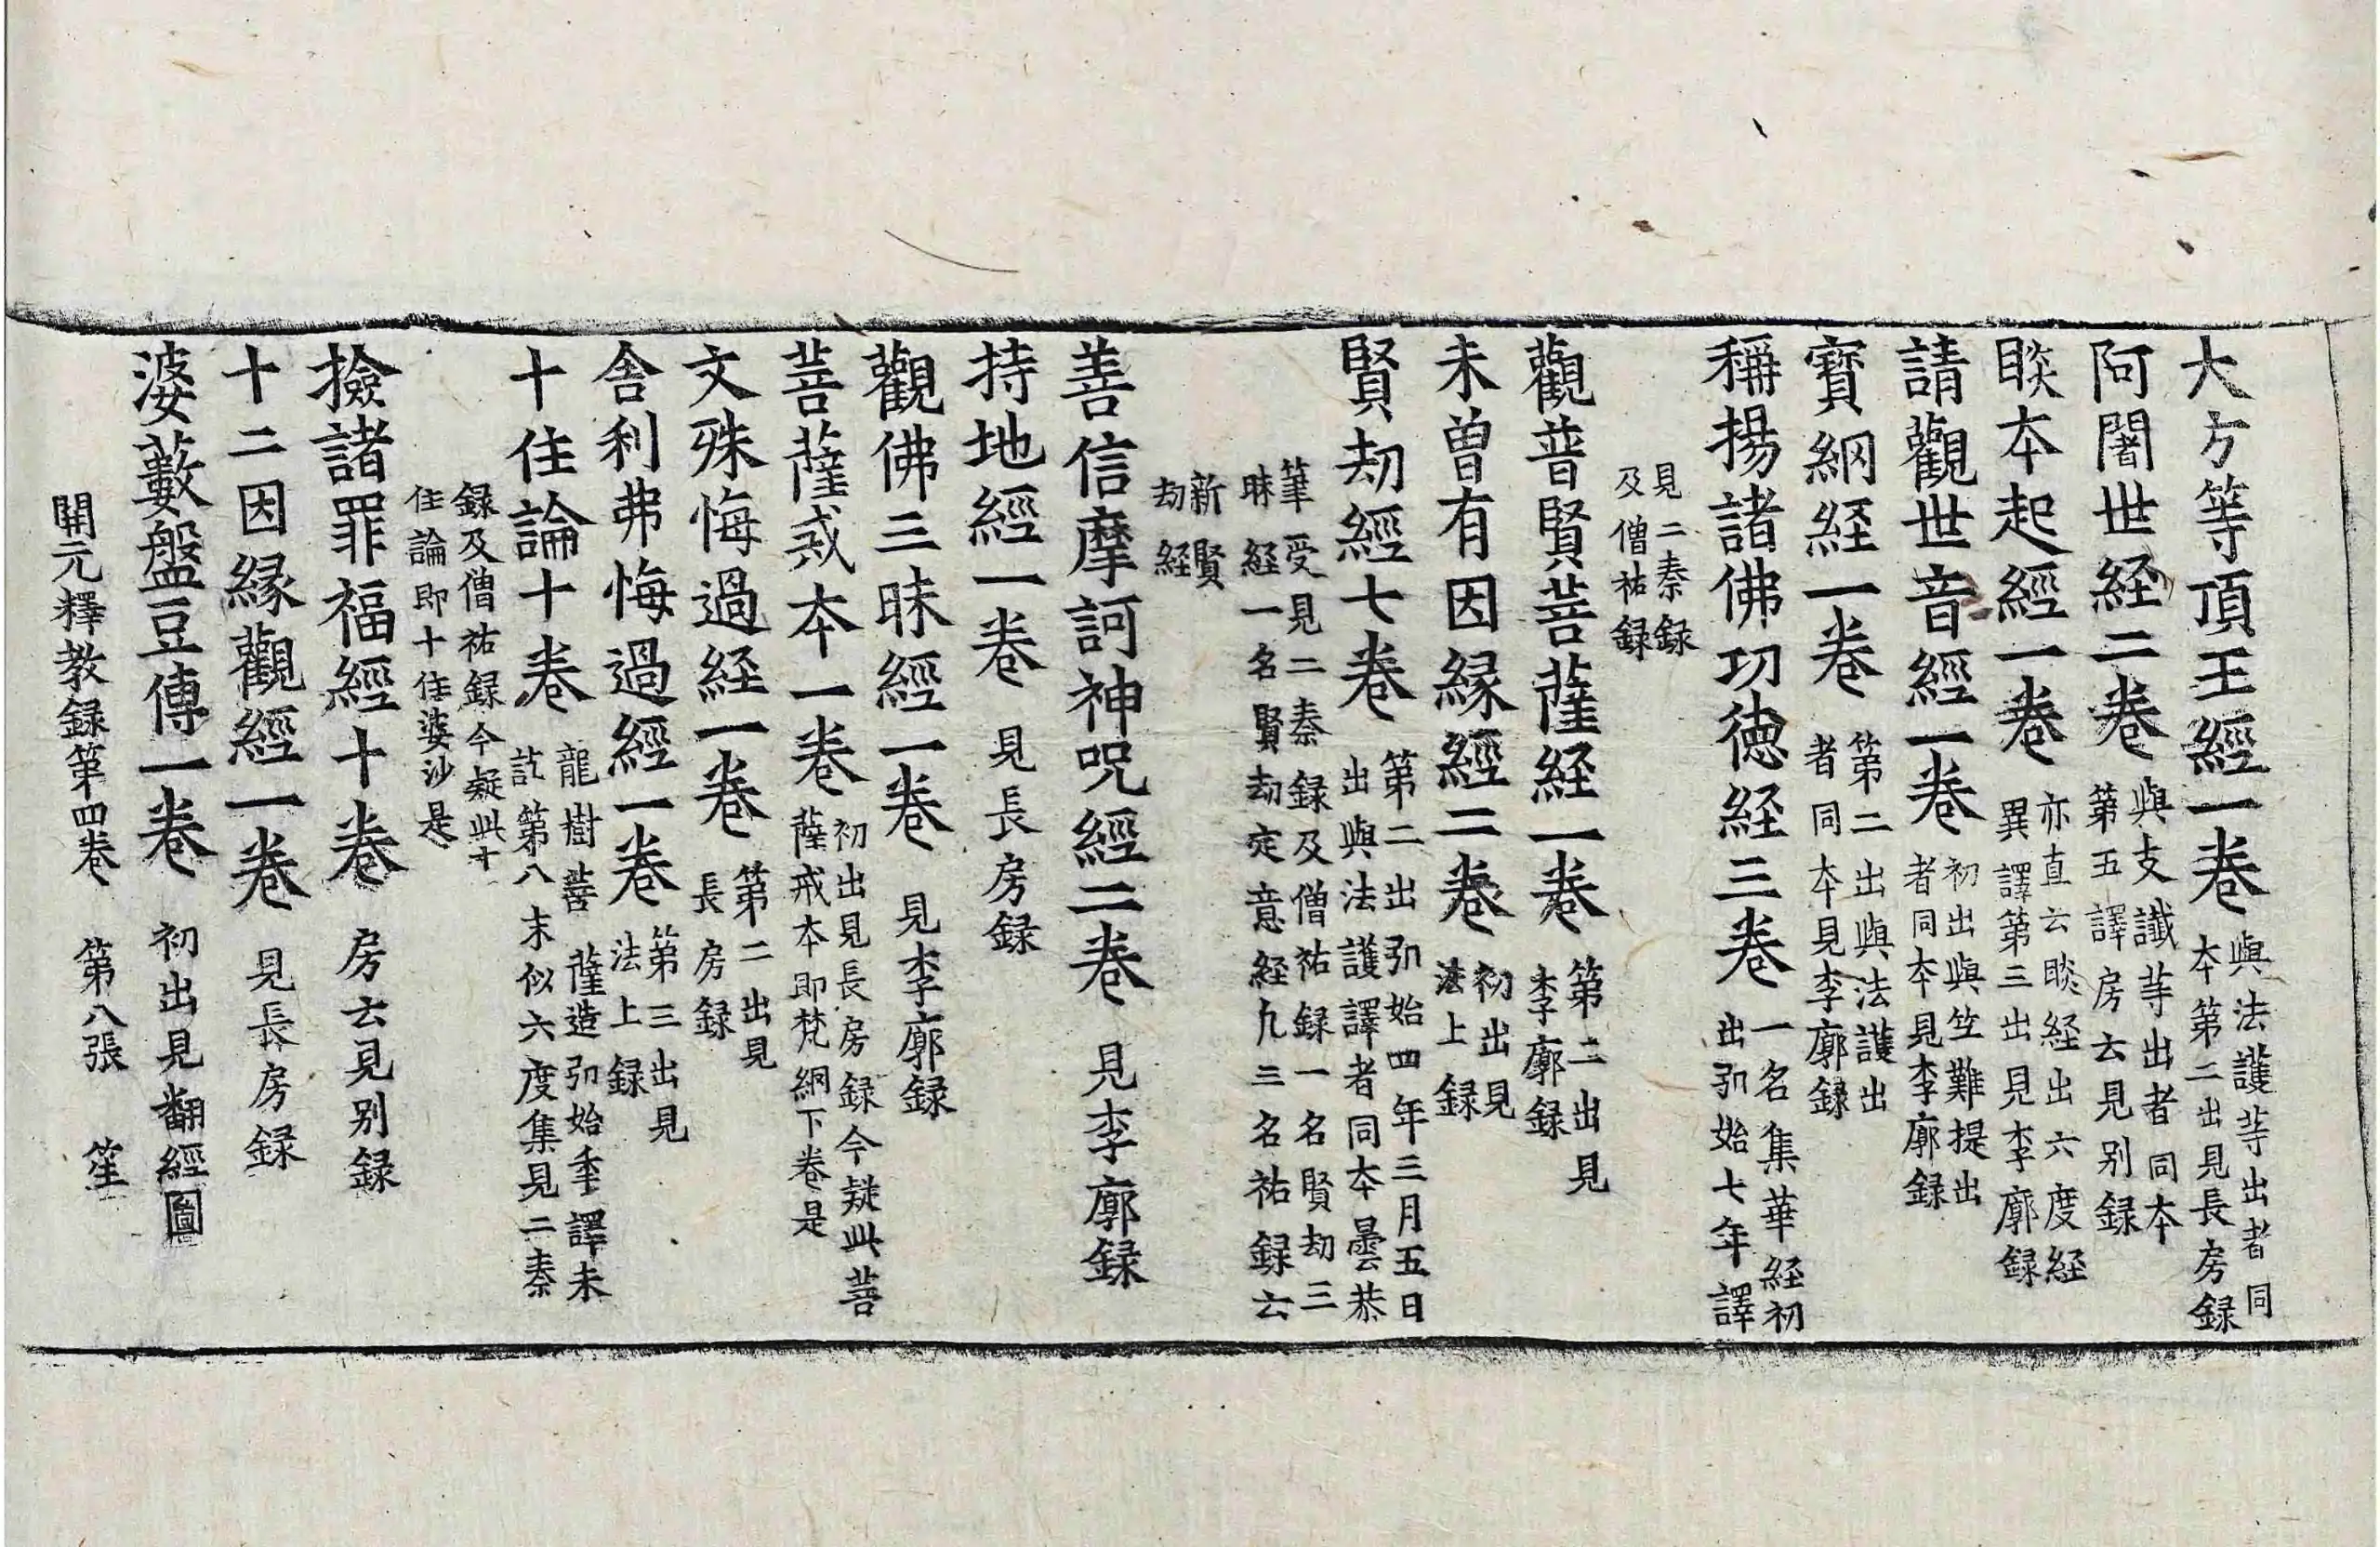 大方等頂王經一卷 與法護等出者同
本第二出見長房録
阿闍世経二卷 與支讖等出者同本
第五譯房云見別録
睒本起經一卷 亦直云睒経出六度経
異譯第三出見李廓録
請觀世音經一卷 初出與竺難提出
者同本見李廓録
寶網経一卷 第二出與法護出
者同本見李廓録
稱揚諸佛功徳経三卷 一名集華経初
出弘始七年譯
見二秦録
及僧祐録
觀普賢菩薩経一卷 第二出見
李廓録
未曾有因縁經二卷 初出見
法上録
賢劫經七卷 第二出弘始四年三月五日
出與法護譯者同本曇恭
筆受見二秦録及僧祐録一名賢劫三
昧経一名賢劫定意経九三名祐録云
新賢
劫経
善信摩訶神呪經二卷 見李廓録
持地經一卷 見長房録
觀佛三昧經一卷 見李廓録
菩薩戒本一卷 初出見長房録今疑此菩
薩戒本即梵網下卷是
文殊悔過経一卷 第二出見
長房録
舎利弗悔過經一卷 第三出見
法上録
十住論十卷 龍樹菩薩造弘始年譯未
訖第八末似六度集見二秦
録及僧祐録今疑此十
住論即十住婆沙是
撿諸罪福經十卷 房云見別録
十二因縁觀經一卷 見長房録
婆藪盤豆傳一卷 初出見翻經圖
開元釋教録第四卷 第八張 笙